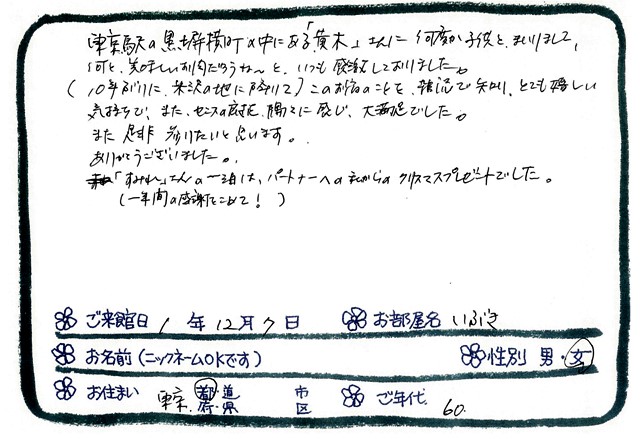 東京駅の黒塀横町の中にある「黄木」さんに何度か子供と、まいりまして、
何と、美味しいお肉だろうね〜と、いつも感激しておりました。
(10年ぶりに、米沢の地に降りて) このお宿のことを、雑誌で知り、とても嬉しい
気持ちで、また、センスの良さを、随所に感じ、大満足でした。
また 是非 参りたいと思います。
ありがとうございました。
「すみれ」さんの一泊は、パートナーへの私からのクリスマスプレゼントでした。
(一年間の感謝をこめて！)
ご来館日 1 年 12月 7 日 お部屋名 いぶき
お名前 (ニックネームOKです) 性別 男・女
お住まい 東京 都・道 府・県 市 区 ご年代 60